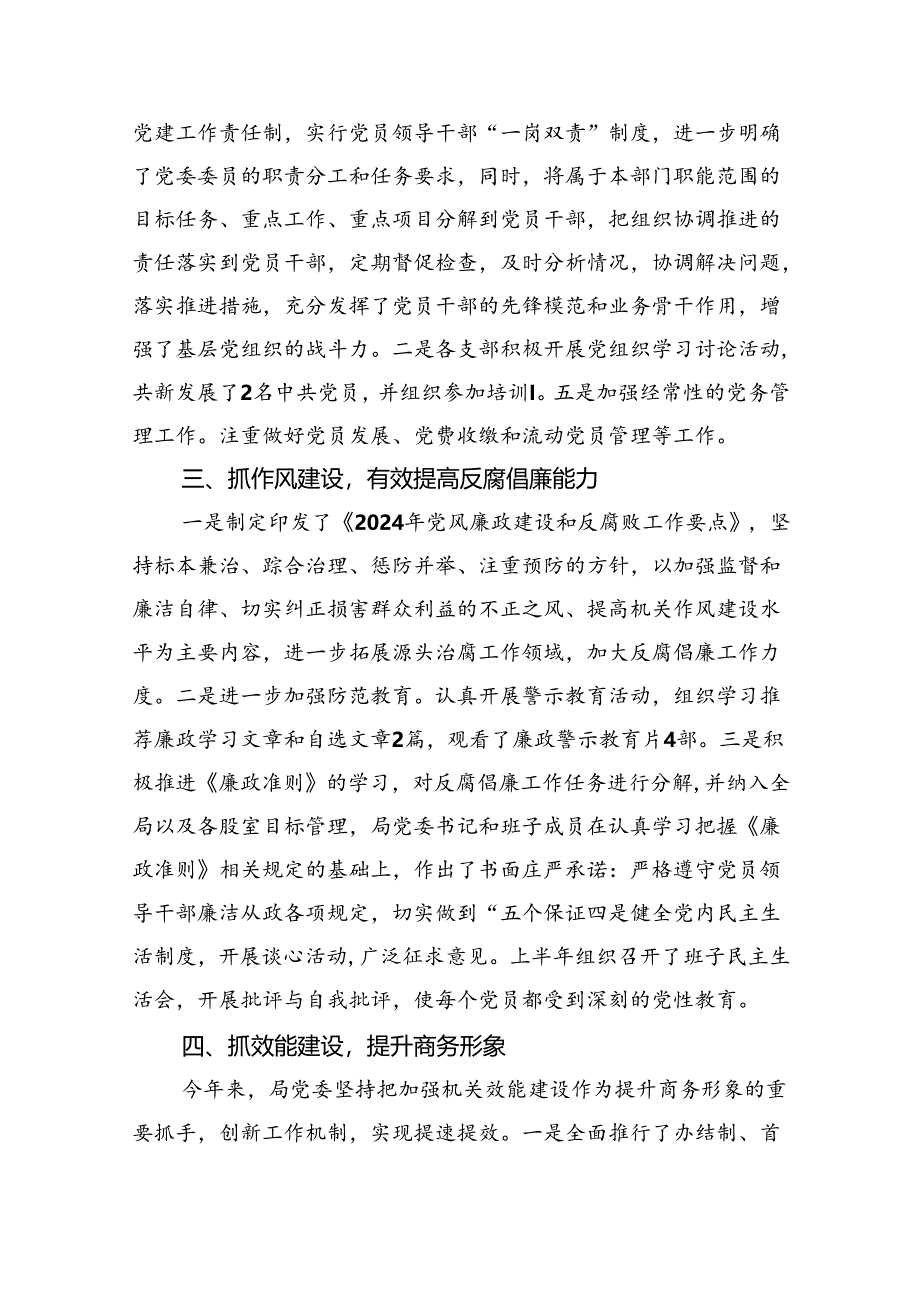 党建工作责任制，实行党员领导干部“一岗双责”制度，进一步明确
了党委委员的职责分工和任务要求，同时，将属于本部门职能范围的
目标任务、重点工作、重点项目分解到党员干部，把组织协调推进的
责任落实到党员干部，定期督促检查，及时分析情况，协调解决问题，
落实推进措施，充分发挥了党员干部的先锋模范和业务骨干作用，增
强了基层党组织的战斗力。二是各支部积极开展党组织学习讨论活动，
共新发展了2名中共党员，并组织参加培训I。五是加强经常性的党务管
理工作。注重做好党员发展、党费收缴和流动党员管理等工作。
三、抓作风建设，有效提高反腐倡廉能力
一是制定印发了《2024年党风廉政建设和反腐败工作要点》，坚
持标本兼治、踪合治理、惩防并举、注重预防的方针，以加强监督和
廉洁自律、切实纠正损害群众利益的不正之风、提高机关作风建设水
平为主要内容，进一步拓展源头治腐工作领域，加大反腐倡廉工作力
度。二是进一步加强防范教育。认真开展警示教育活动，组织学习推
荐廉政学习文章和自选文章2篇，观看了廉政警示教育片4部。三是积
极推进《廉政准则》的学习，对反腐倡廉工作任务进行分解，并纳入全
局以及各股室目标管理，局党委书记和班子成员在认真学习把握《廉
政准则》相关规定的基础上，作出了书面庄严承诺：严格遵守党员领
导干部廉洁从政各项规定，切实做到“五个保证四是健全党内民主生
活制度，开展谈心活动，广泛征求意见。上半年组织召开了班子民主生
活会，开展批评与自我批评，使每个党员都受到深刻的党性教育。
四、抓效能建设，提升商务形象
今年来，局党委坚持把加强机关效能建设作为提升商务形象的重
要抓手，创新工作机制，实现提速提效。一是全面推行了办结制、首